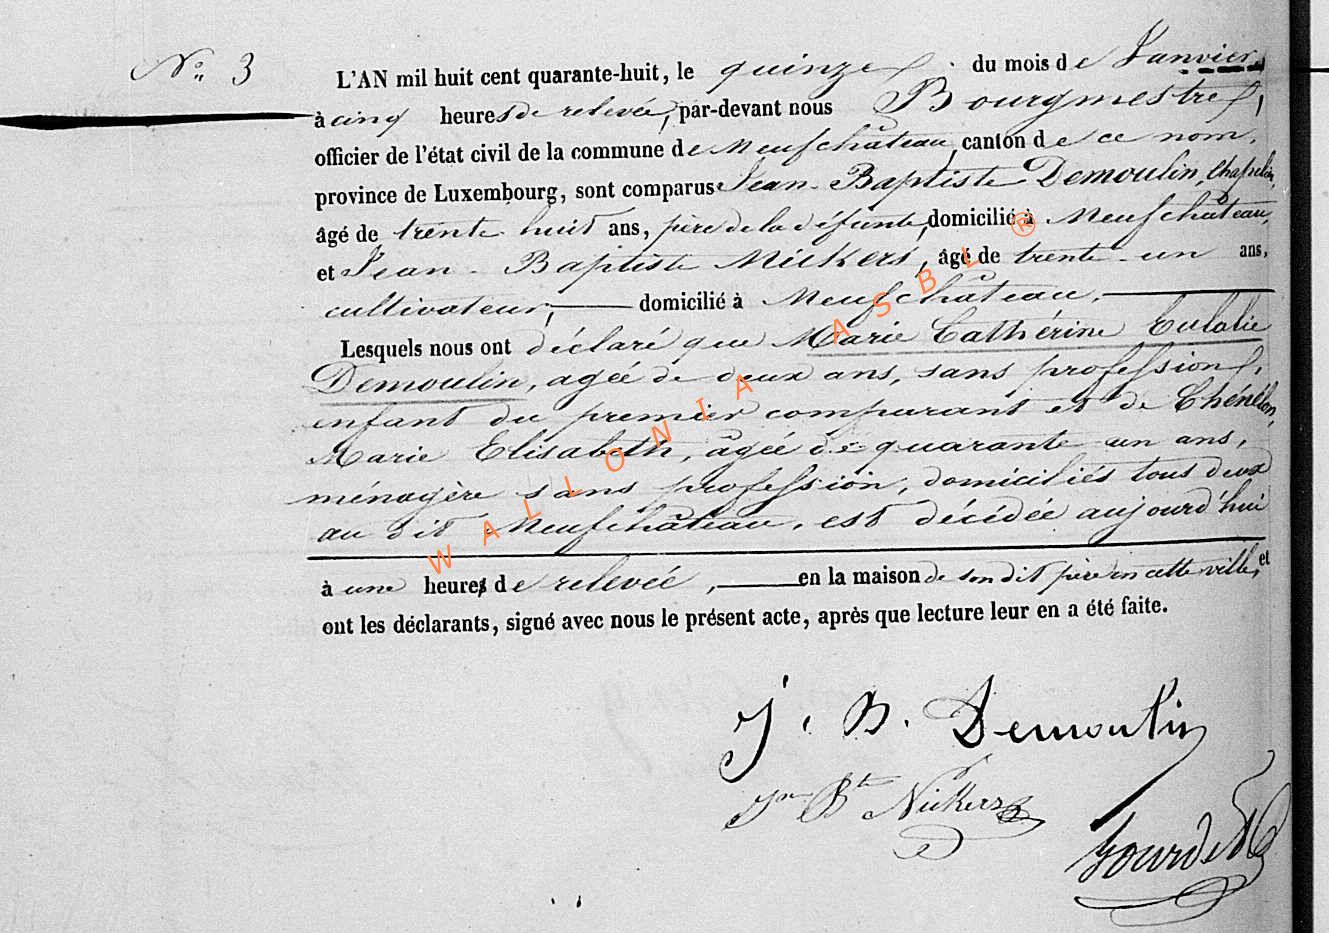 No 3
L'AN mil huit cent quarante-huit, le quinze du mois de Janvier,
à cinq heures de relevée, par-devant nous Bourgmestre,
officier de l'état civil de la commune de Neufchâteau, canton de ce nom,
province de Luxembourg, sont comparus Jean-Baptiste Demoulin, Chapelier,
âgé de trente huit ans, père de la défunte, domicilié à Neufchâteau,
et Jean-Baptiste Nickers, âgé de trente-un ans,
cultivateur, domicilié à Neufchâteau.
Lesquels nous ont déclaré que Marie Cathérine Eulalie
Demoulin, agée de deux ans, sans profession,
enfant du premier comparant et de
Marie Elisabeth, âgée de quarante un ans,
ménagère sans profession, domiciliés tous deux
au dit Neufchâteau, est décédée aujourd'hui
à une heures de relevée, en la maison de son dit père en cette ville, et
ont les déclarants, signé avec nous le présent acte, après que lecture leur en a été faite.
J. B. Demoulin
Jn Bte Nickers
WALLONIA ASBL ®